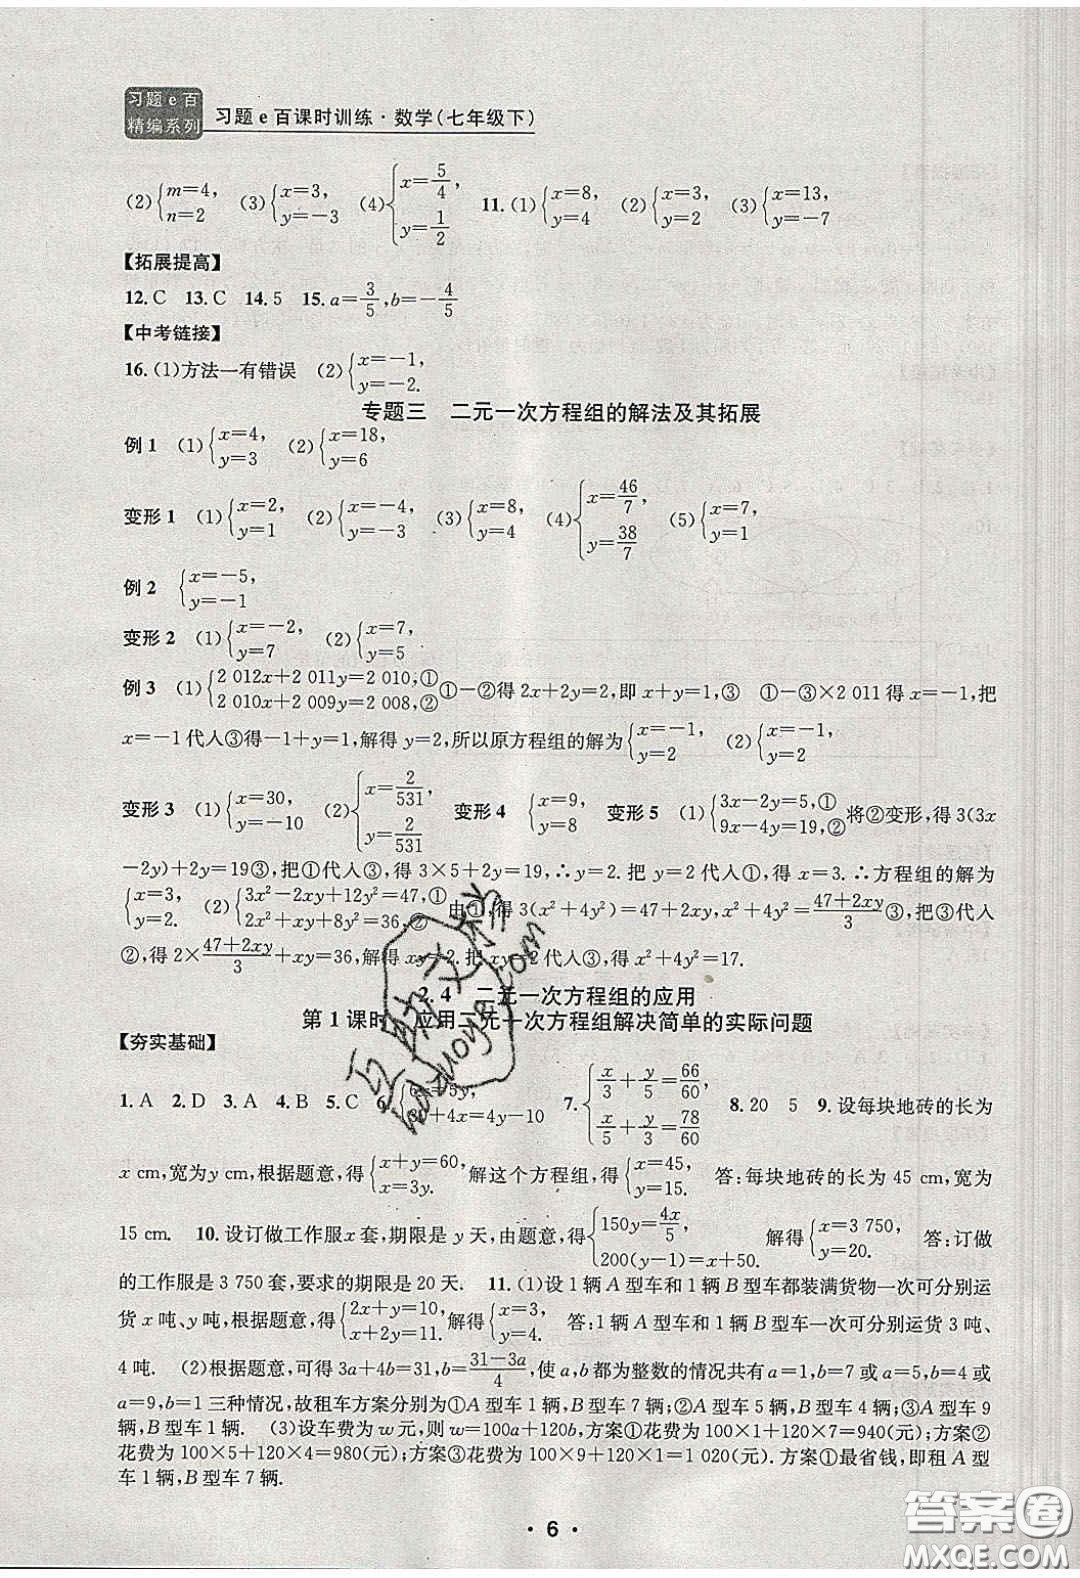 习题e百
精编系列
习题e百课时训练·数学(七年级下)
(2){m=4, n=2 (3){x=3, y=-3 (4){x=5/4, y=1/2 11.(1){x=8, y=4 (2){x=3, y=2 (3){x=13, y=-7
【拓展提高】
12.C 13.C 14.5 15.a=3/5,b=-4/5
【中考链接】
16.(1)方法一有错误 (2){x=-1, y=-2.
专题三 二元一次方程组的解法及其拓展
例1 (1){x=4, y=3 (2){x=18, y=6
变形1 (1){x=2, y=1 (2){x=-4, y=-3 (3){x=8, y=4 (4){x=46/7, y=38/7 (5){x=7, y=1
例2 {x=-5, y=-1
变形2 (1){x=-2, y=7 (2){x=7, y=5
例3 (1){2 012x+2 011y=2 010,① 2 010x+2 009y=2 008,② ①-②得2x+2y=2,即x+y=1,③ ①-③×2 011得x=-1,把
x=-1代人③得-1+y=1,解得y=2,所以原方程组的解为{x=-1, y=2 (2){x=-1, y=2
变形3 (1){x=30, y=-10 (2){x=2/531, y=2/531 变形4 {x=9, y=8 变形5 (1){3x-2y=5,① 9x-4y=19,② 将②变形,得3(3x
-2y)+2y=19③,把①代人③,得3×5+2y=19,∴y=2.把y=2代人①,得x=3.∴方程组的解为
{x=3, y=2. (2){3x²-2xy+12y²=47,① 2x²+xy+8y²=36,② 由①,得3(x²+4y²)=47+2xy,x²+4y²=(47+2xy)/3③,把③代人
②,得2×(47+2xy)/3+xy=36,解得xy=2.把xy=2代人③,得x²+4y²=17.
2.4 二元一次方程组的应用
第1课时 应用二元一次方程组解决简单的实际问题
【夯实基础】
1.A 2.D 3.A 4.B 5.C 6.{6x=5y, 3x+4x=4y-10 7.{x/3+y/5=66/60 x/5+y/3=78/60 8.20 5 9.设每块地砖的长为
x cm,宽为y cm,根据题意,得{x+y=60, x=3y. 解这个方程组,得{x=45, y=15. 答:每块地砖的长为45 cm,宽为
15 cm. 10.设订做工作服x套,期限是y天,由题意,得{150y=4x/5 200(y-1)=x+50. 解得{x=3 750, y=20. 答:订做
的工作服是3 750套,要求的期限是20天. 11.(1)设1辆A型车和1辆B型车都装满货物一次可分别运
货x吨、y吨,根据题意,得{2x+y=10, x+2y=11. 解得{x=3, y=4. 答:1辆A型车和1辆B型车一次可分别运货3吨、
4吨. (2)根据题意,可得3a+4b=31,b=(31-3a)/4,使a,b都为整数的情况共有a=1,b=7或a=5,b=4或
a=9,b=1三种情况,故租车方案分别为①A型车1辆,B型车7辆;②A型车5辆,B型车4辆;③A型车9
辆,B型车1辆. (3)设车费为w元,则w=100a+120b,方案①花费为100×1+120×7=940(元);方案②
花费为100×5+120×4=980(元);方案③花费为100×9+120×1=1 020(元).方案①最省钱,即租A型
车1辆,B型车7辆.
·6·
答案圈
MXQE.COM